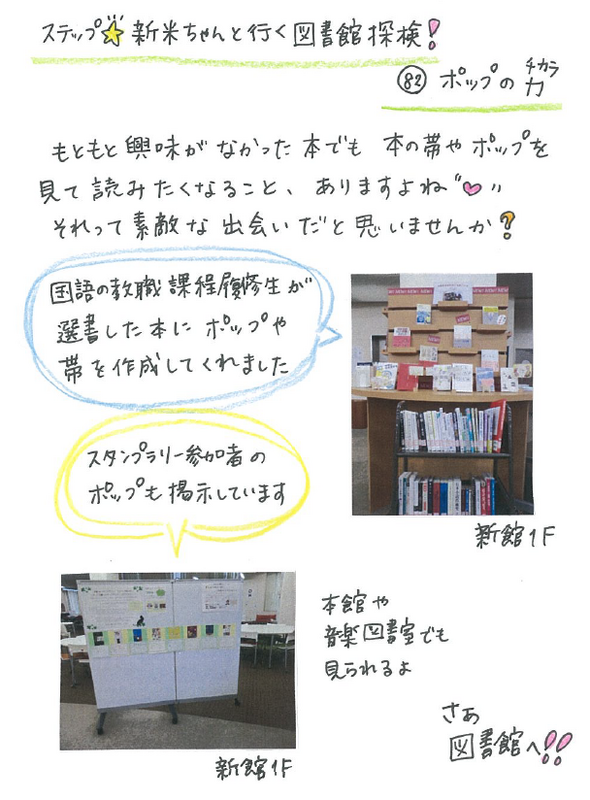 ステップ☆新米ちゃんと行く図書館探検!
82 ポップの力
チカラ
もともと興味がなかった本でも 本の帯やポップを
見て読みたくなること、ありますよね♡〃
それって素敵な出会いだと思いませんか?
国語の教職課程履修生が
選書した本にポップや
帯を作成してくれました
新館1F
スタンプラリー参加者の
ポップも掲示しています
新館1F
本館や
音楽図書室でも
見られるよ
さあ
図書館へ!!